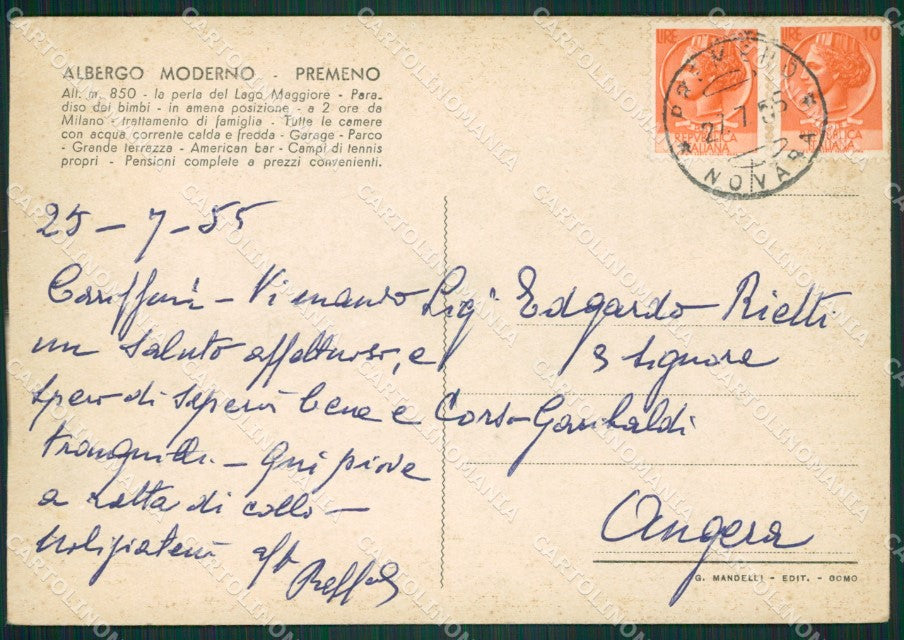 ALBERGO MODERNO - PREMENO
Alt. m. 850 - la perla del Lago Maggiore - Para-
diso dei bimbi - in amena posizione - a 2 ore da
Milano - trattamento di famiglia - Tutte le camere
con acqua corrente calda e fredda - Garage - Parco
- Grande terrazza - American bar - Campi di tennis
propri - Pensioni complete a prezzi convenienti.
LIRE
LIRE 10
REPUBBLICA
ITALIANA
REPUBBLICA
ITALIANA
PREMENO
27.7.55
NOVARA
25-7-55
Carissimi - Vi mando
un saluto affettuoso, e
spero di sapervi bene e
tranquilli. - Qui piove
a rotta di collo -
Notiziatemi aff
Sigr Edgardo Rietti
e Signora
Corso Garibaldi
Angera
G. MANDELLI - EDIT. - COMO
CARTOLINOMANIA